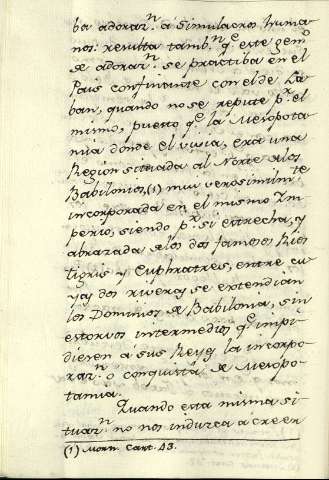 ba adorar.n a Simulacros huma
nos: resulta tamb.n q.e este gen.o
de adorar.n se practiba en el
Pais confinante con el de La
ban, quando no se repute p.r el
mismo, puesto q.e la Mesopota
mia donde el vivia, era una
Region situada al Norte de los
Babilonios, (1) mui verosimilm.te
incorporada en el mismo Im
perio, siendo p.r si estrecha, y
abrazada de los dos famosos Rios
tigris y Euphratres, entre cu
yas dos riveras se extendian
los Dominios de Babilonia, sin
estorvos intermedios q.e impi
diesen a sus Reyes la incorpo
rar.n o conquista de Mesopo
tamia.
Quando esta misma si
tuar.n no nos indusca a creer
(1) Morn. Cart. 43.